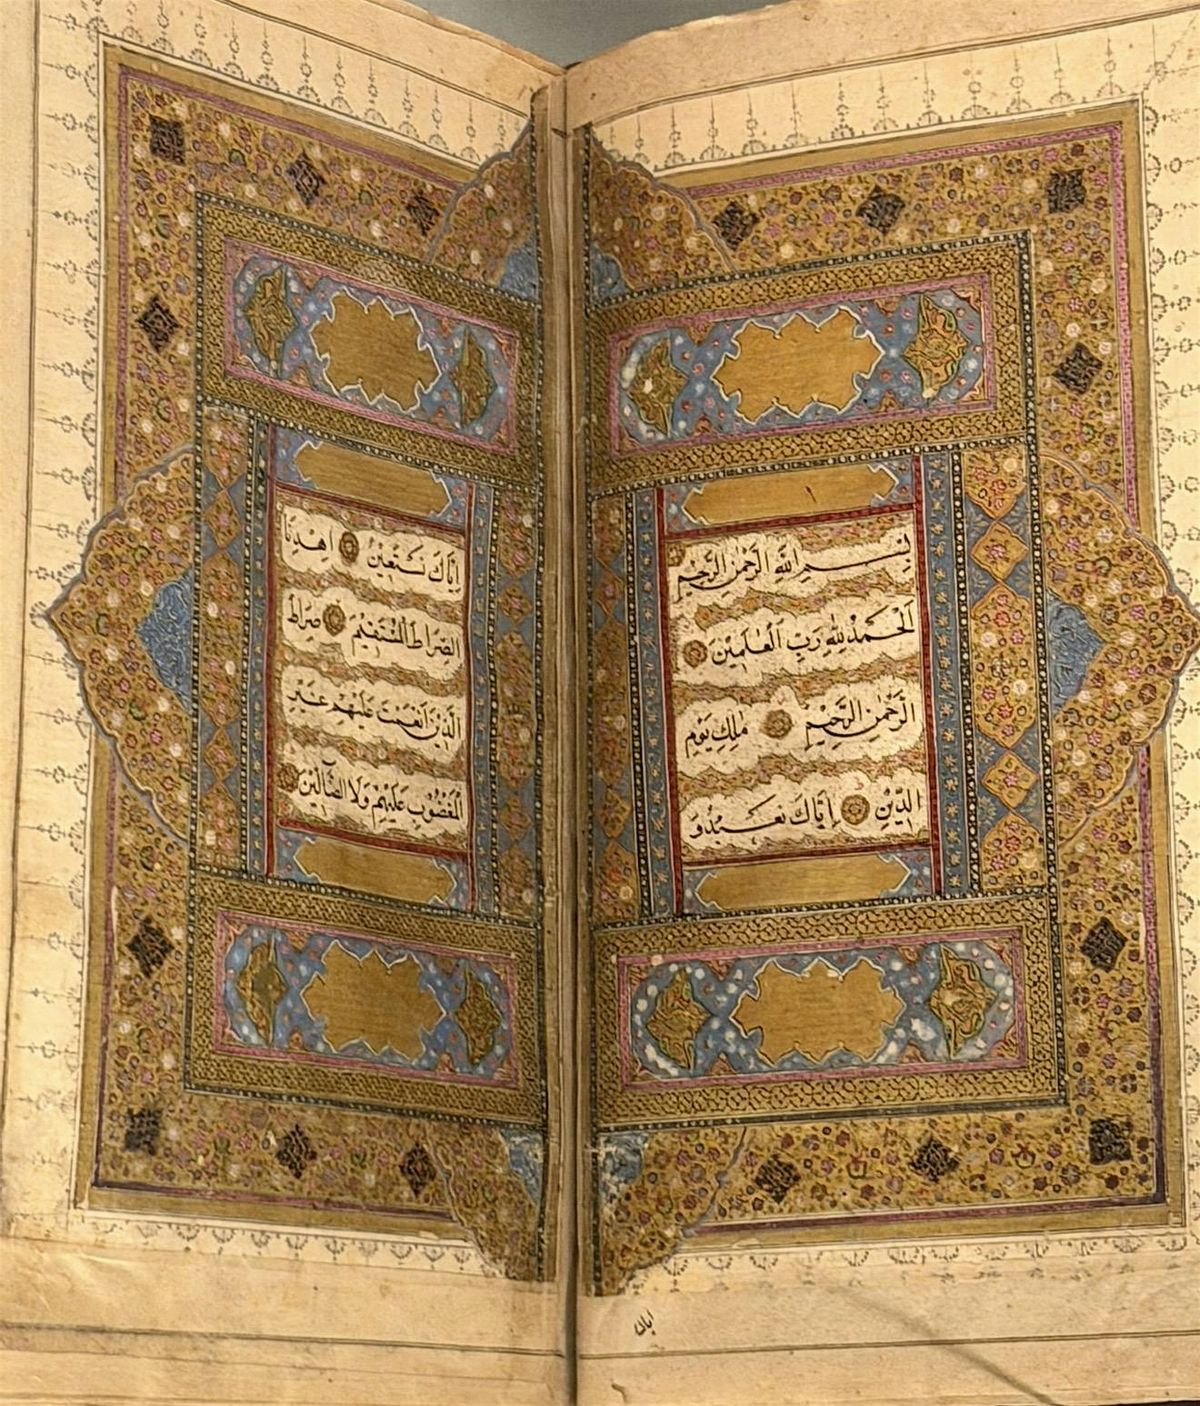 بِسْمِ اللَّهِ الرَّحْمٰنِ الرَّحِيْمِ
اَلْحَمْدُ لِلّٰهِ رَبِّ الْعٰلَمِيْنَ
الرَّحْمٰنِ الرَّحِيْمِ مٰلِكِ يَوْمِ
الدِّيْنِ اِيَّاكَ نَعْبُدُ وَ
اِيَّاكَ نَسْتَعِيْنُ اهْدِنَا
الصِّرَاطَ الْمُسْتَقِيْمَ صِرَاطَ
الَّذِيْنَ اَنْعَمْتَ عَلَيْهِمْ غَيْرِ
الْمَغْضُوْبِ عَلَيْهِمْ وَلَا الضَّآلِّيْنَ
اياك